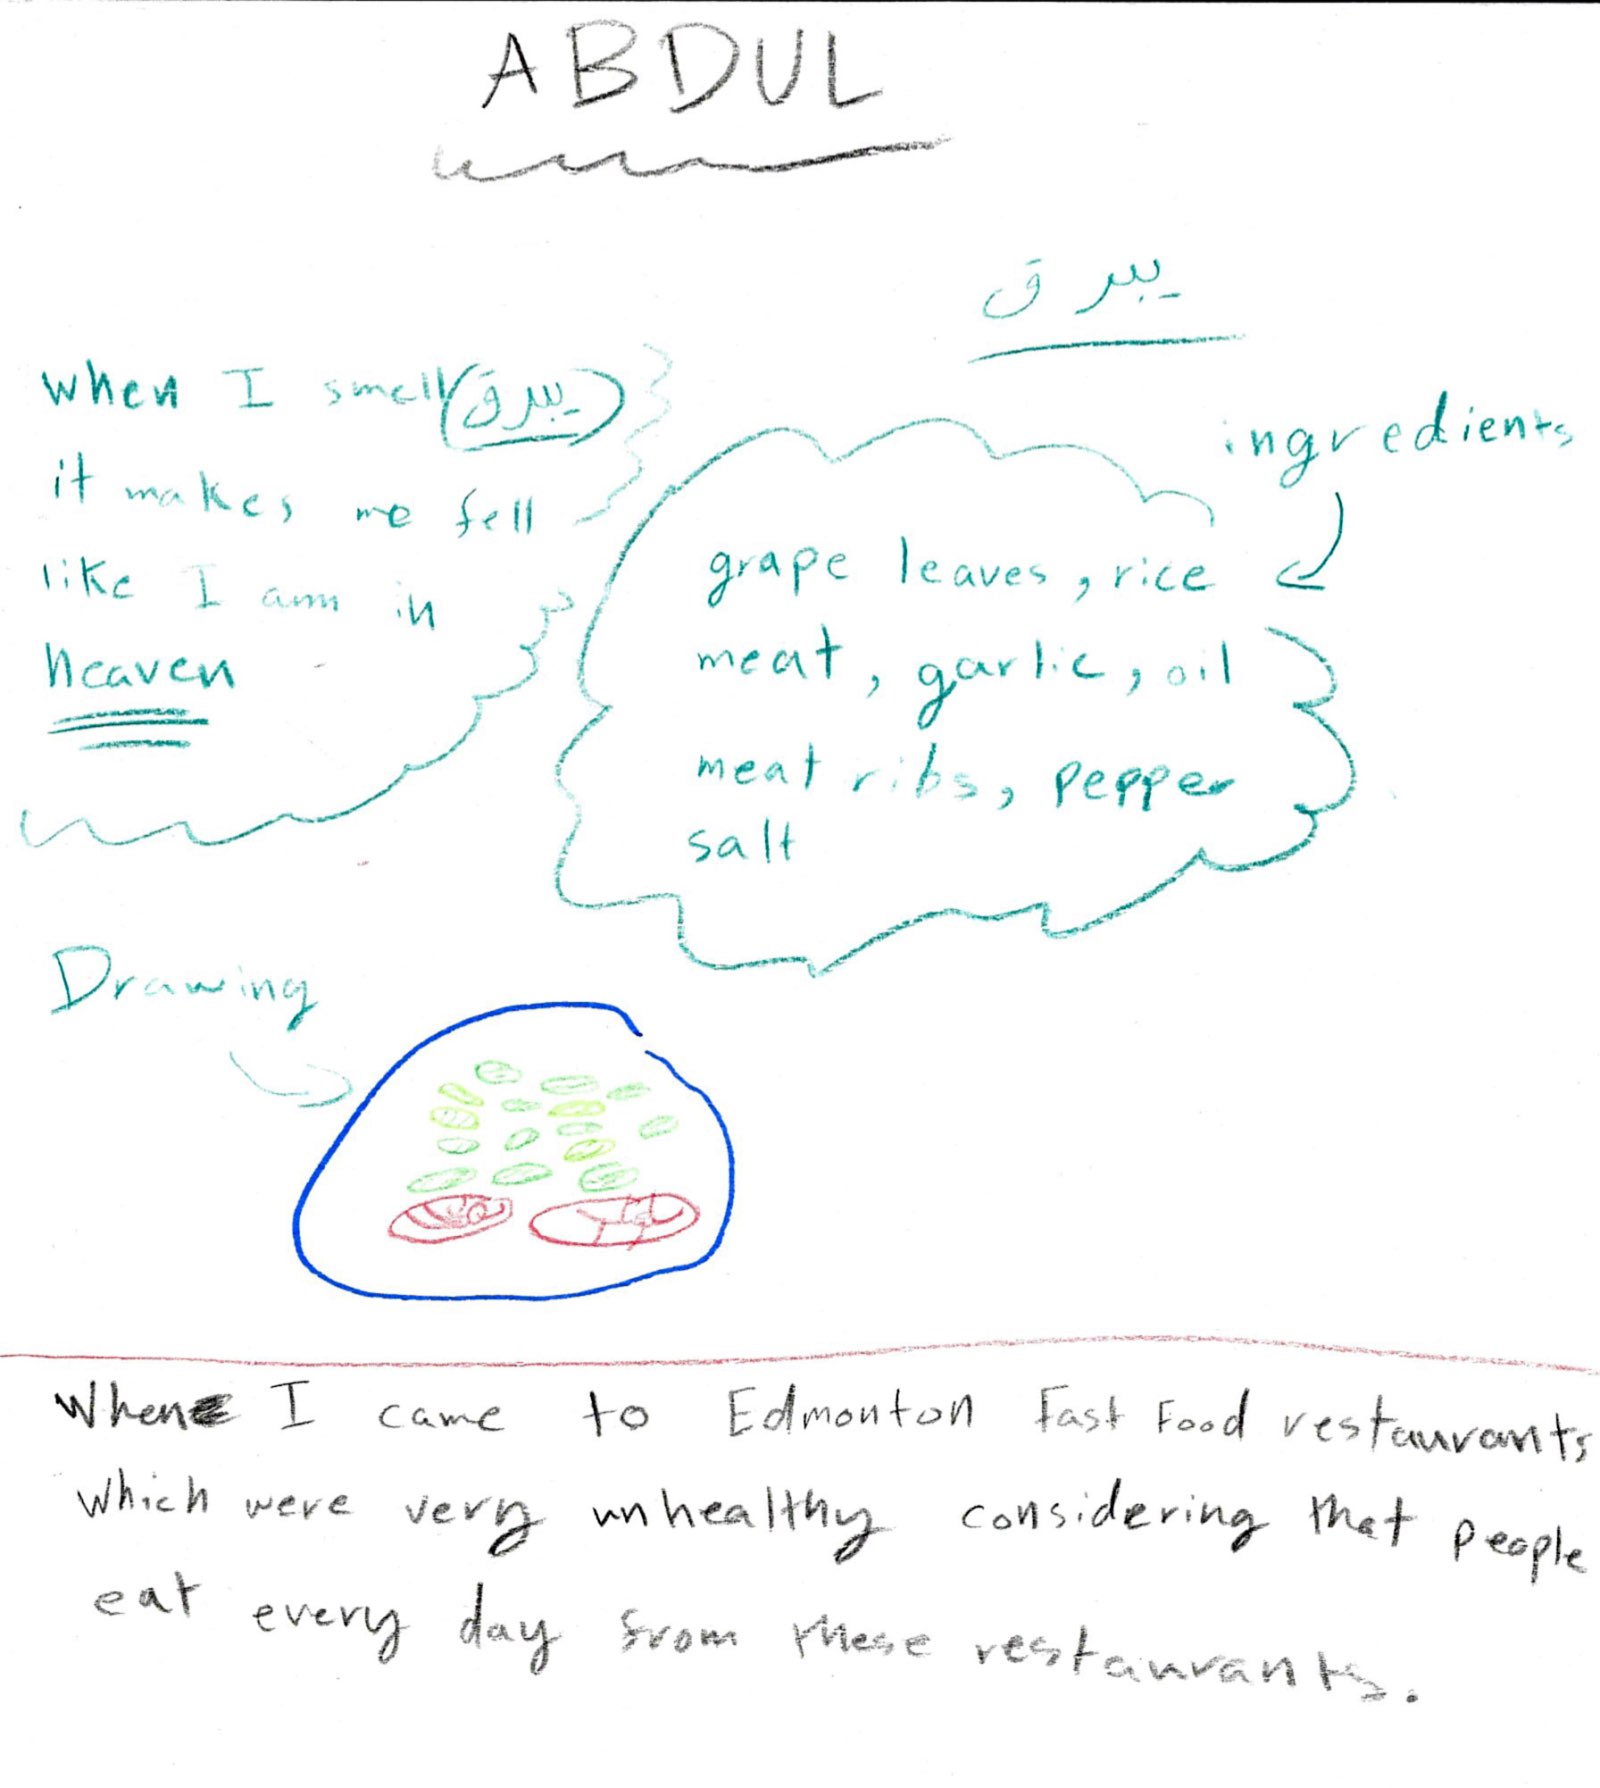 ABDUL
يبرق
when I smell (يبرق)
it makes me fell
like I am in
heaven
ingredients
grape leaves, rice
meat, garlic, oil
meat ribs, pepper
salt
Drawing
When I came to Edmonton Fast Food restaurants
which were very unhealthy considering that people
eat every day from these restaurants.